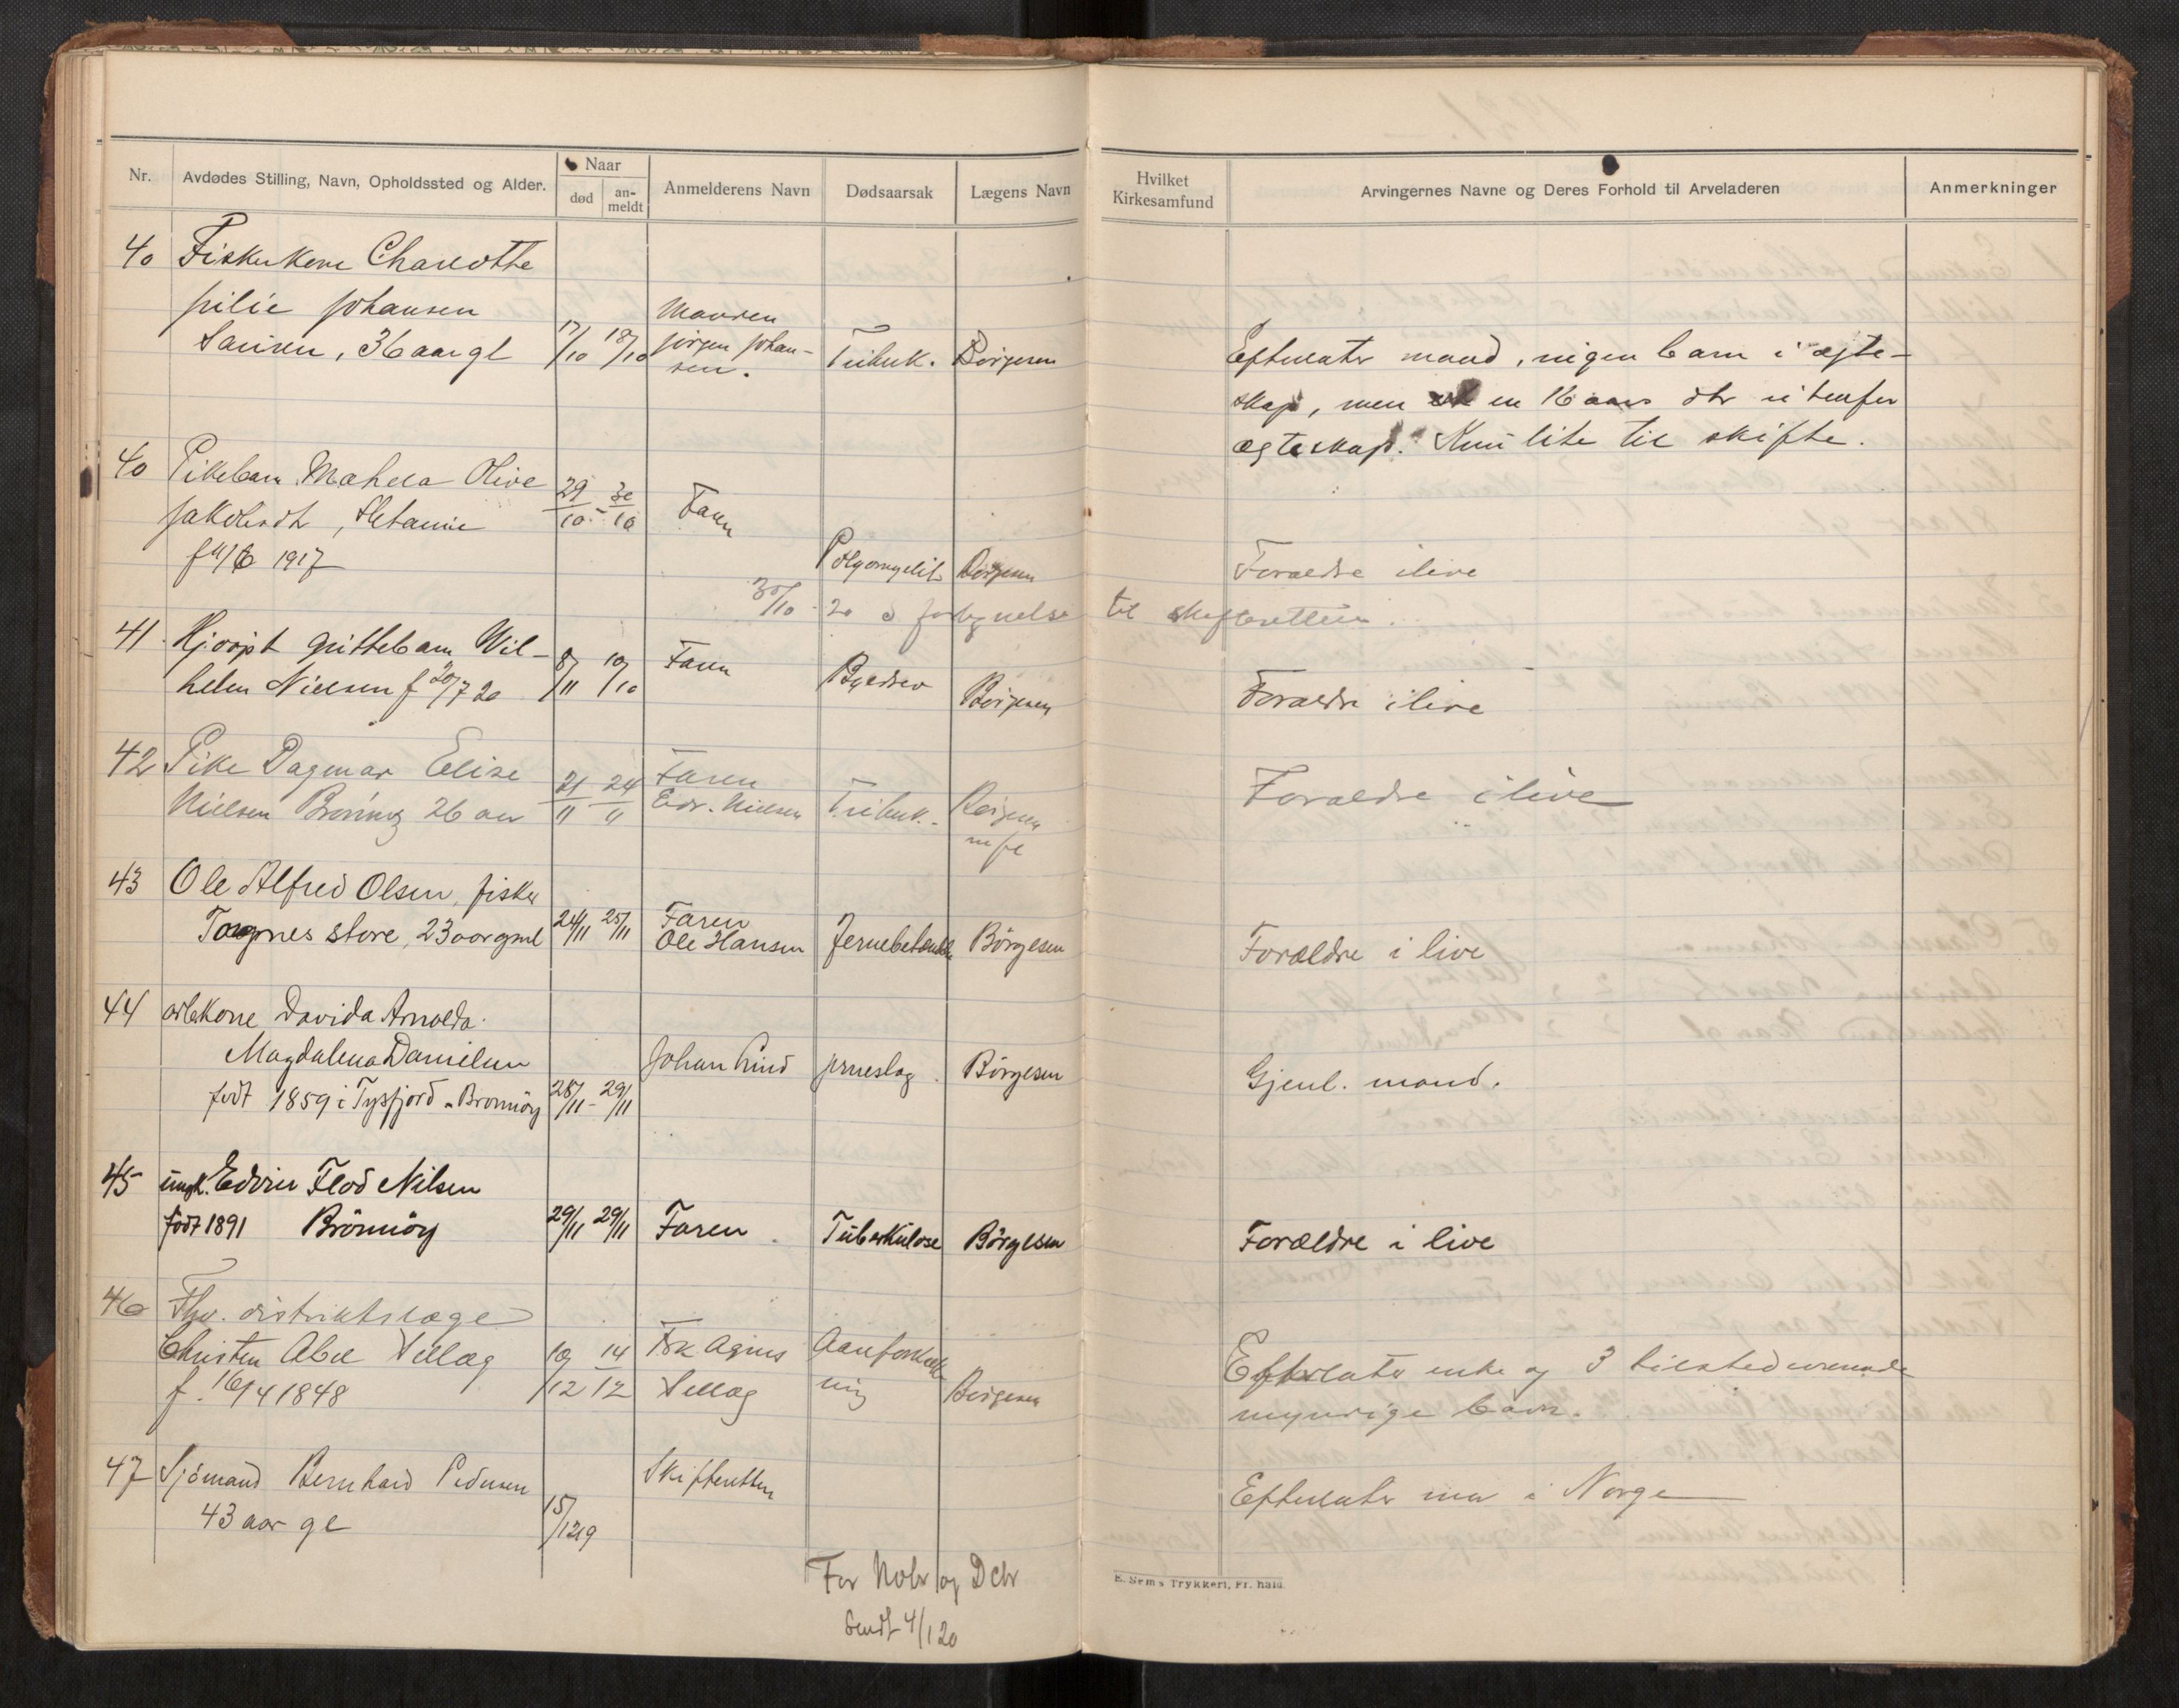 Nr.
Avdødes Stilling, Navn, Opholdssted og Alder.
Naar
død
an-
meldt
Anmelderens Navn
Dødsaarsak
Lægens Navn
Hvilket
Kirkesamfund
Arvingernes Navne og Deres Forhold til Arveladeren
Anmerkninger
40 Fiskerkone Charlotte
Johansen
36 aar gl 17/10 18/10
Manden
Jørgen Johan-
sen.
Tuberk. Børgesen
Efterlater mand, ingen barn i ægte-
skap, men en 16 aars dtr utenfor
ægteskap. Kun lite til skifte.
40 Pikebarn Olive 29/10 - 30/10 Faren
Jakobsdtr,
1917
Polyomyelit Børgesen
Forældre ilive
30/10 20 til skifteretten.
41 gittebarn Wil-
helm Nielsen f 20/7 20 8/11 10/10 Faren Børgesen
Forældre ilive
42 Pike Dagmar Elise
Nielsen Brönnöy 26 aar 21/11 24/11 Faren
Edv. Nielsen Tuberk. Børgesen
Forældre ilive
43 Ole Alfred Olsen, fisker
Torgnes store, 23 aar gml 24/11 25/11 Faren
Ole Hansen Børgesen
Forældre i live
44 Davida Arnolda
Magdalena Danielsen
født 1859 i Tysfjord - Bronnöy 28/11 - 29/11
Johan Lind Børgesen
Gjenl. mand.
45 ungk. Edvin Flod Nilsen
født 1891 Brönnöy 29/11 29/11 Faren Tuberkulose Børgesen
Forældre i live
46 Fhv. distriktslæge
Christen Abel Sellæg 10/12 14/12
f. 16/4 1848
Frk Agnes
Sellæg
Aareforkalk-
ning
Børgesen
Efterlater enke og 3 tilstedeværende
myndige barn.
47 Sjömand Bernhard Pedersen
43 aar gl 15/12 19
Skifteretten
Efterlater mor i Norge
For Nobr og Dcbr
Sendt 4/1 20
E. Sem's Trykkeri, Fr. hald.